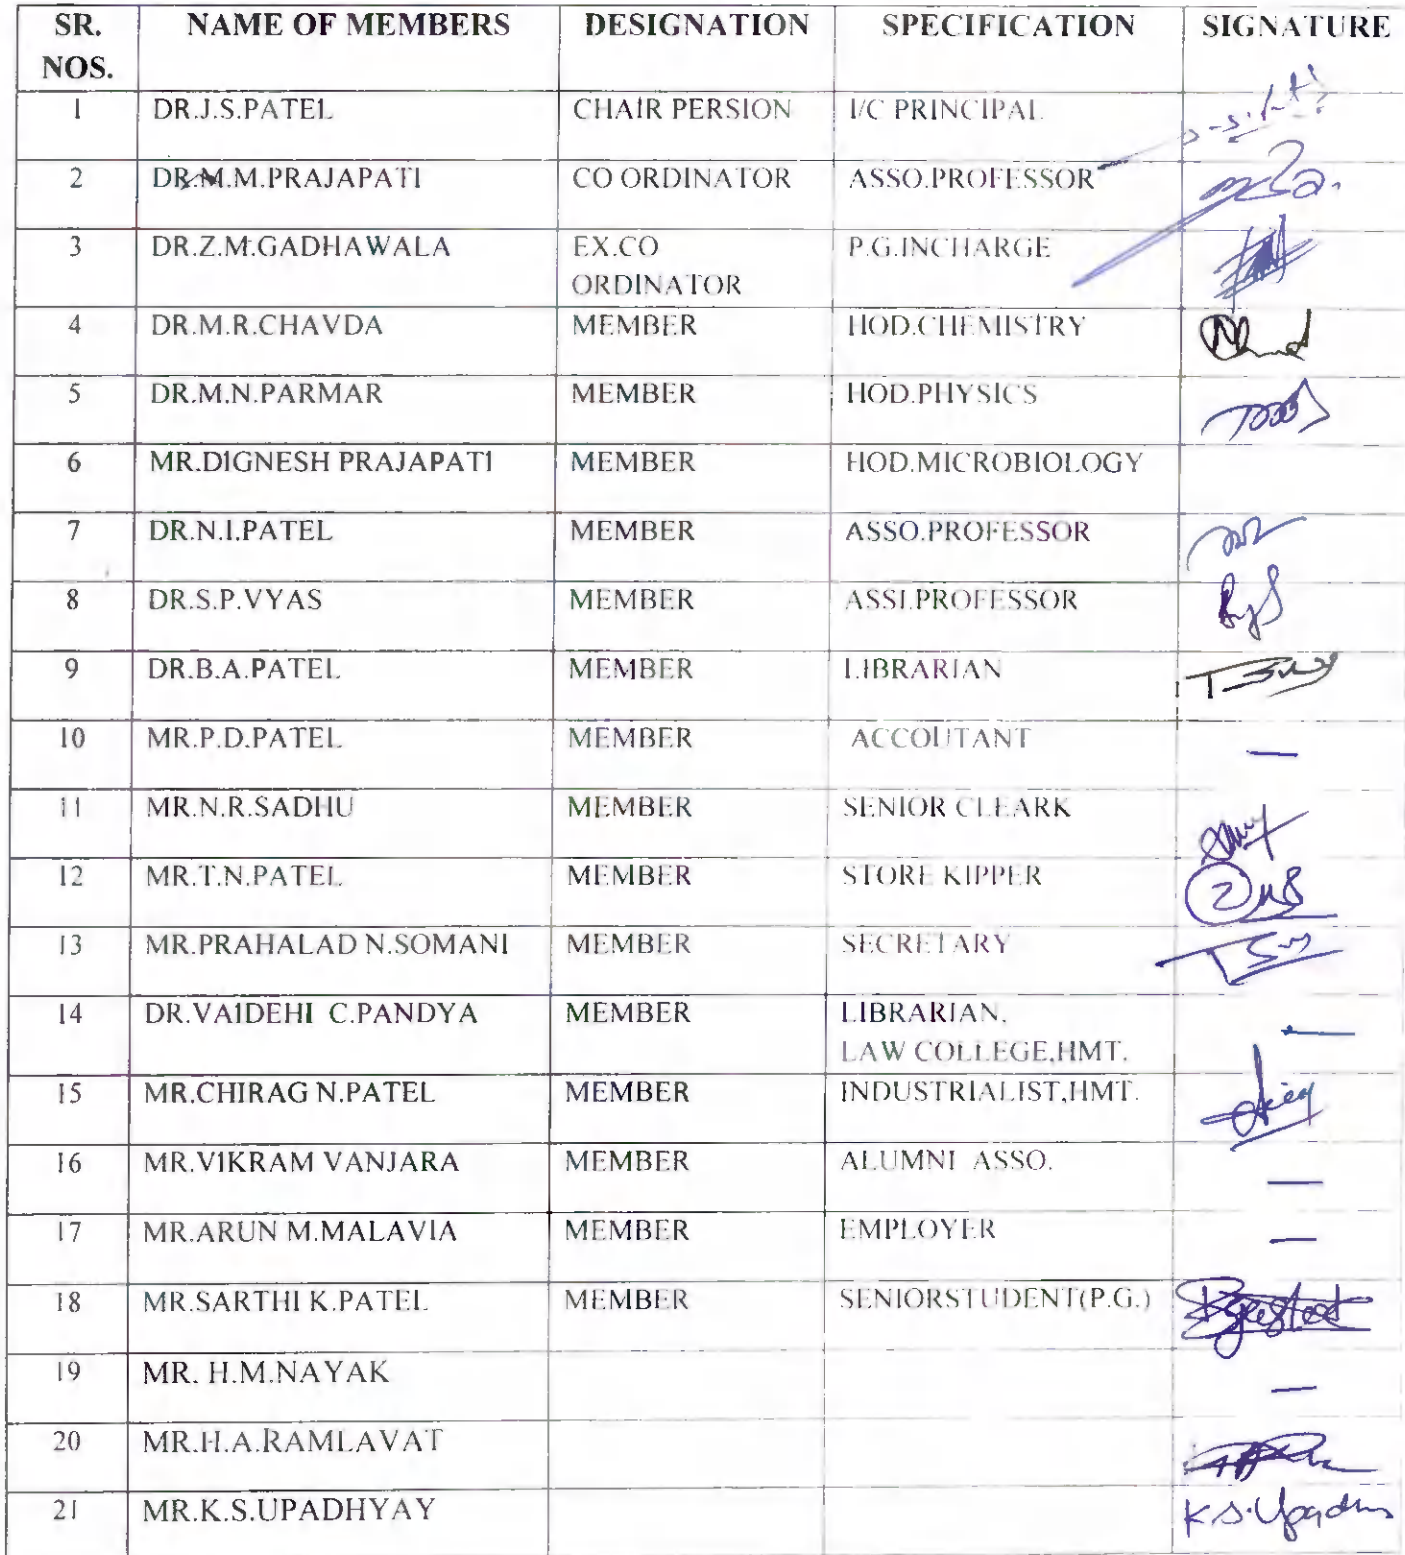 SR. NOS. NAME OF MEMBERS DESIGNATION SPECIFICATION SIGNATURE
1 DR.J.S.PATEL CHAIR PERSION I/C PRINCIPAL
2 DR.M.M.PRAJAPATI CO ORDINATOR ASSO.PROFESSOR
3 DR.Z.M.GADHAWALA EX.CO ORDINATOR P.G.INCHARGE
4 DR.M.R.CHAVDA MEMBER HOD.CHEMISTRY
5 DR.M.N.PARMAR MEMBER HOD.PHYSICS
6 MR.DIGNESH PRAJAPATI MEMBER HOD.MICROBIOLOGY
7 DR.N.I.PATEL MEMBER ASSO.PROFESSOR
8 DR.S.P.VYAS MEMBER ASSI.PROFESSOR
9 DR.B.A.PATEL MEMBER LIBRARIAN
10 MR.P.D.PATEL MEMBER ACCOUTANT —
11 MR.N.R.SADHU MEMBER SENIOR CLEARK
12 MR.T.N.PATEL MEMBER STORE KIPPER
13 MR.PRAHALAD N.SOMANI MEMBER SECRETARY
14 DR.VAIDEHI C.PANDYA MEMBER LIBRARIAN, LAW COLLEGE,HMT. —
15 MR.CHIRAG N.PATEL MEMBER INDUSTRIALIST,HMT.
16 MR.VIKRAM VANJARA MEMBER ALUMNI ASSO. —
17 MR.ARUN M.MALAVIA MEMBER EMPLOYER —
18 MR.SARTHI K.PATEL MEMBER SENIORSTUDENT(P.G.)
19 MR. H.M.NAYAK —
20 MR.H.A.RAMLAVAT
21 MR.K.S.UPADHYAY